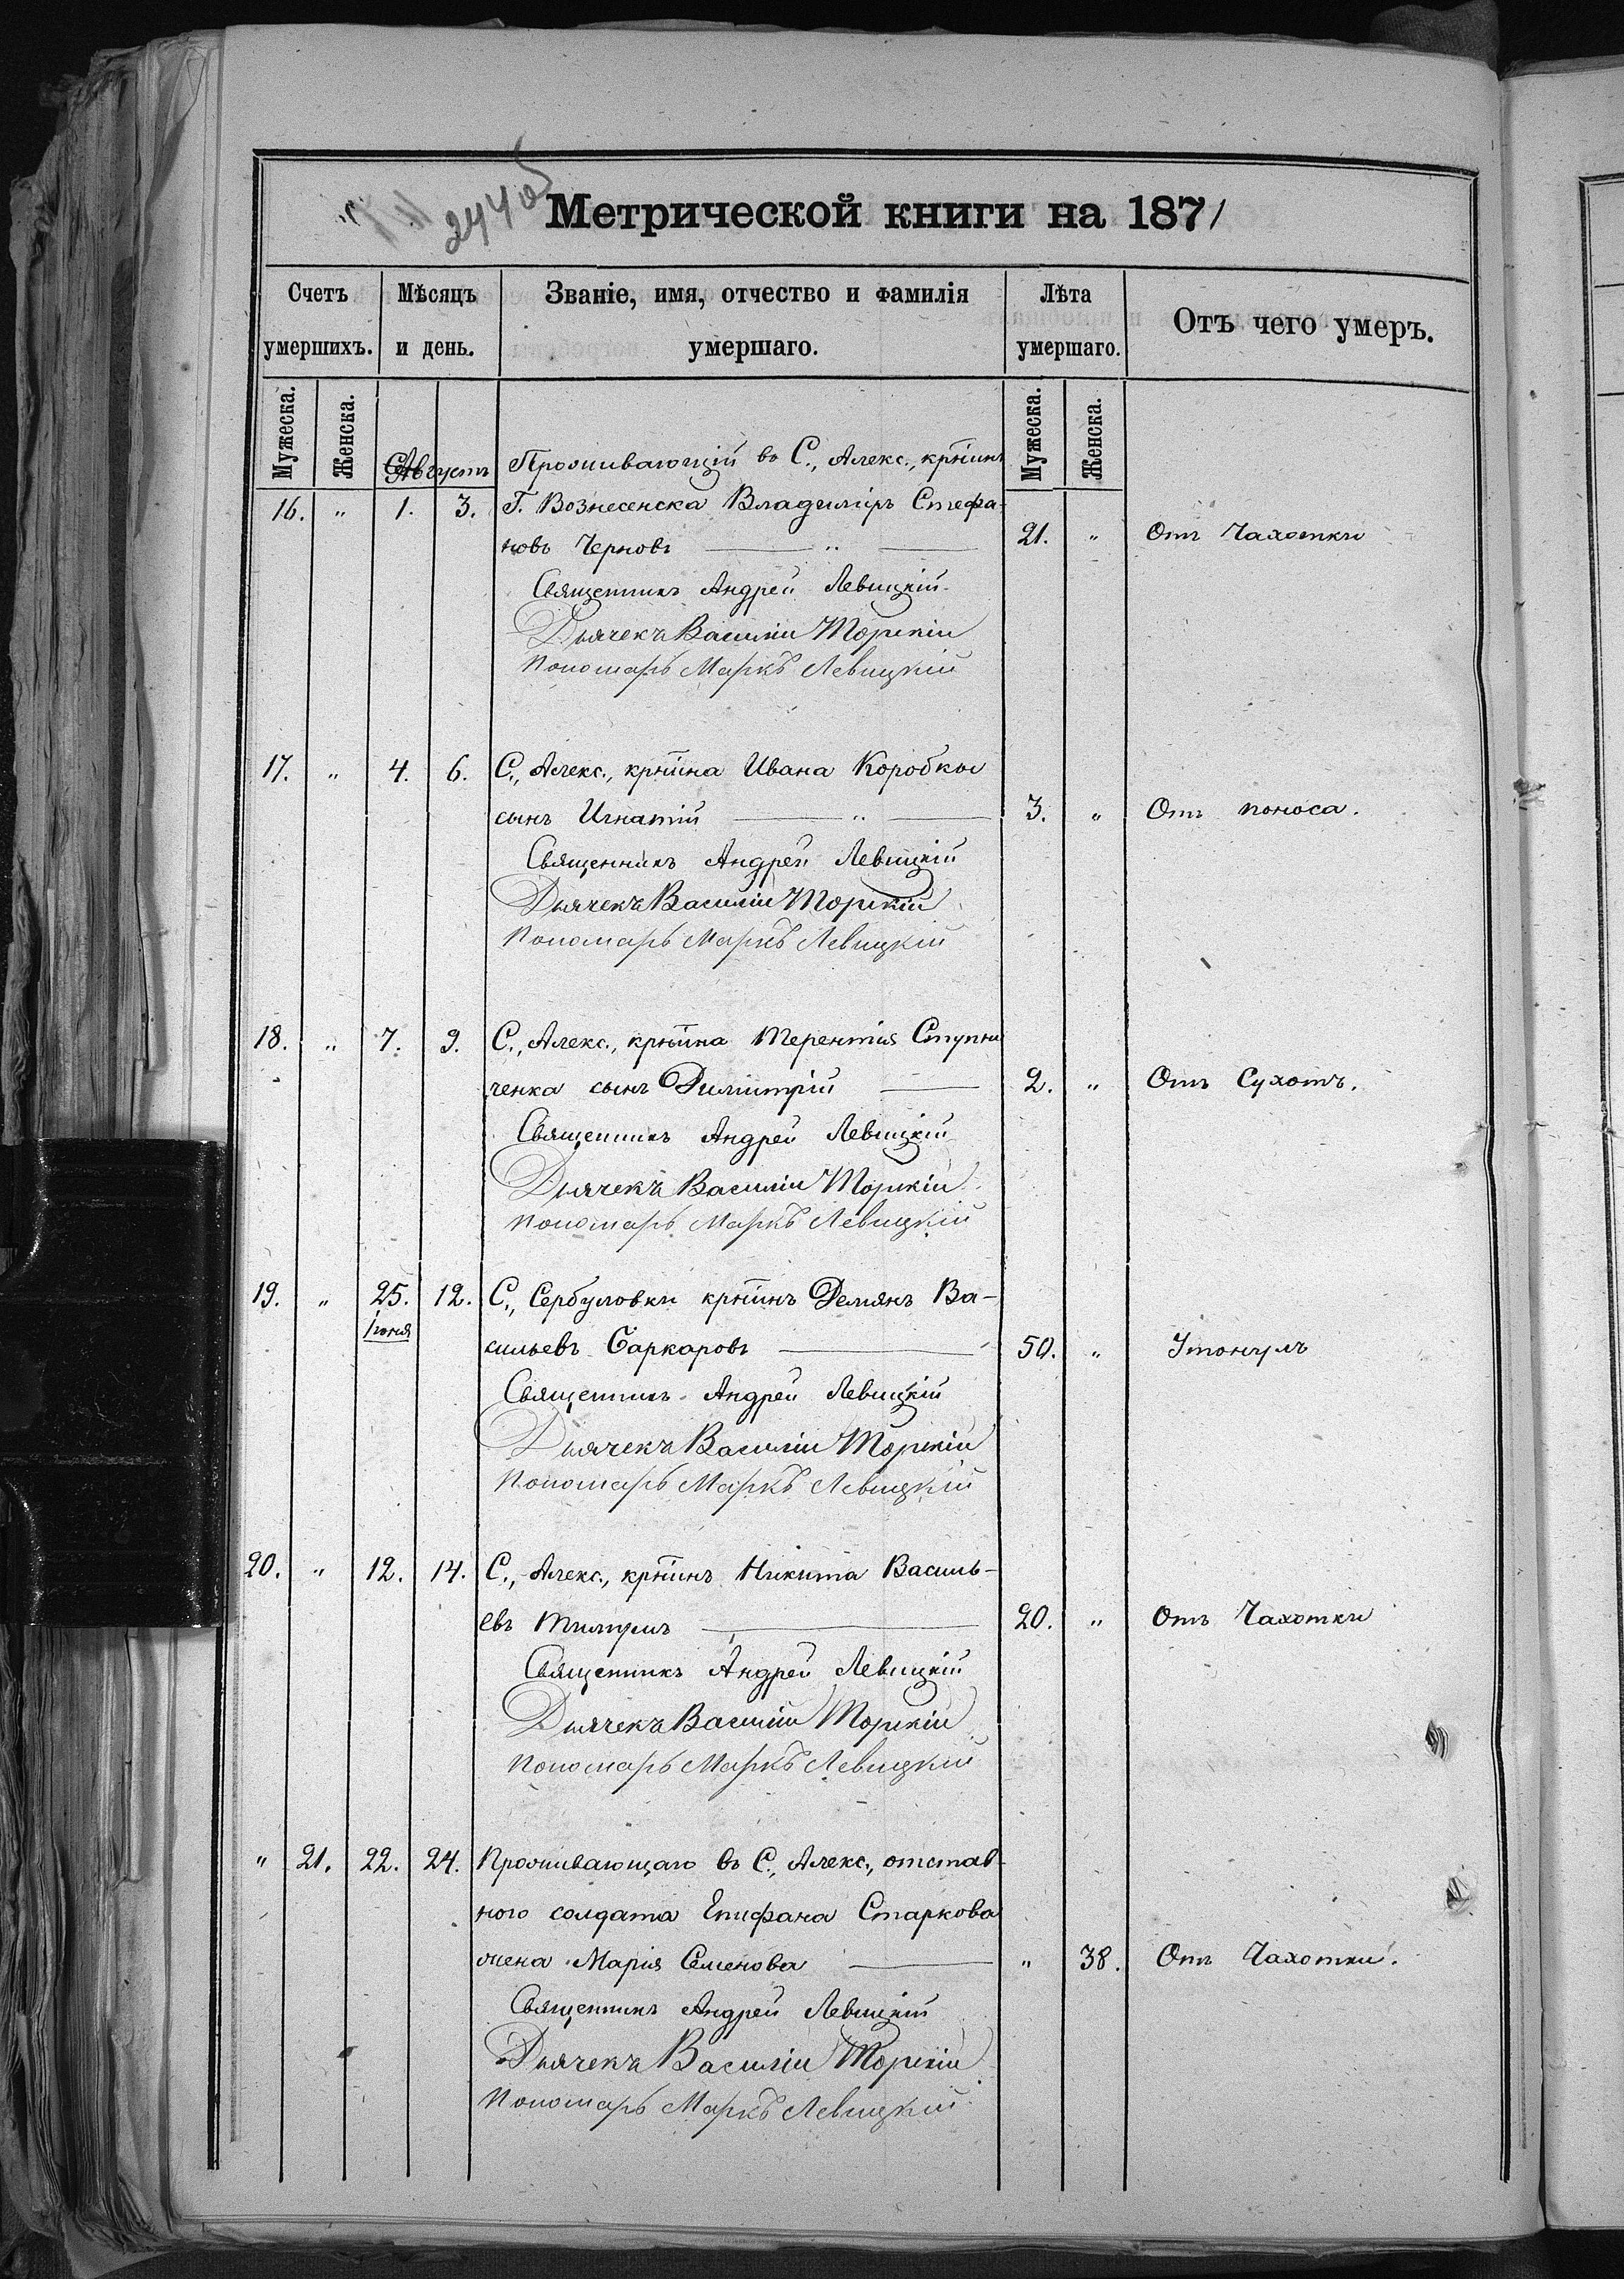 244 об
Метрической книги на 1871
Счетъ умершихъ. Мѣсяцъ и день. Званіе, имя, отчество и фамилія умершаго. Лѣта умершаго. Отъ чего умеръ.
Мужеска. Женска. Мужеска. Женска.
Августъ Проживающій въ С., Алекс., крт̄инъ
16. " 1. 3. Г. Вознесенска Владиміръ Стефа-
новъ Черновъ " 21. " Отъ Чахотки
Священникъ Андрей Левицкій
Дьячекъ Василій Торскій
Пономарь Маркъ Левицкій
17. " 4. 6. С., Алекс., крт̄ина Ивана Коробки
сынъ Игнатій " 3. " Отъ поноса.
Священникъ Андрей Левицкій
Дьячекъ Василій Торскій
Пономарь Маркъ Левицкій
18. " 7. 9. С., Алекс., крт̄ина Терентія Ступни
ченка сынъ Димитрій 2. " Отъ Сухотъ.
Священникъ Андрей Левицкій
Дьячекъ Василій Торскій
Пономарь Маркъ Левицкій
19. " 25. 12. С., Сербуловки крт̄инъ Демянъ Ва-
Іюня
сильевъ Саркаровъ 50. " Утонулъ
Священникъ Андрей Левицкій
Дьячекъ Василій Торскій
Пономарь Маркъ Левицкій
20. " 12. 14. С., Алекс., крт̄инъ Никита Василь-
евъ 20. " Отъ Чахотки
Священникъ Андрей Левицкій
Дьячекъ Василій Торскій
Пономарь Маркъ Левицкій
" 21. 22. 24. Проживающаго въ С., Алекс., отстав-
ного солдата Епифана Старкова
жена Марія Семенова " 38. Отъ Чахотки.
Священникъ Андрей Левицкій
Дьячекъ Василій Торскій
Пономарь Маркъ Левицкій